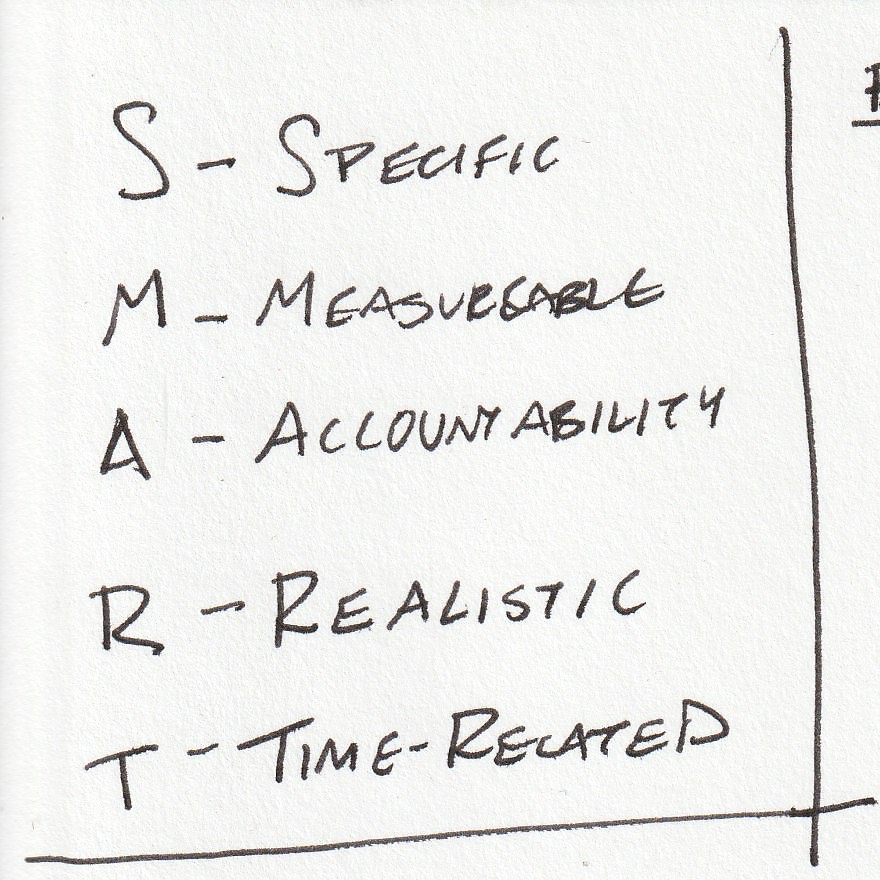 S - SPECIFIC
M - MEASUREABLE
A - ACCOUNTABILITY
R - REALISTIC
T - TIME-RELATED